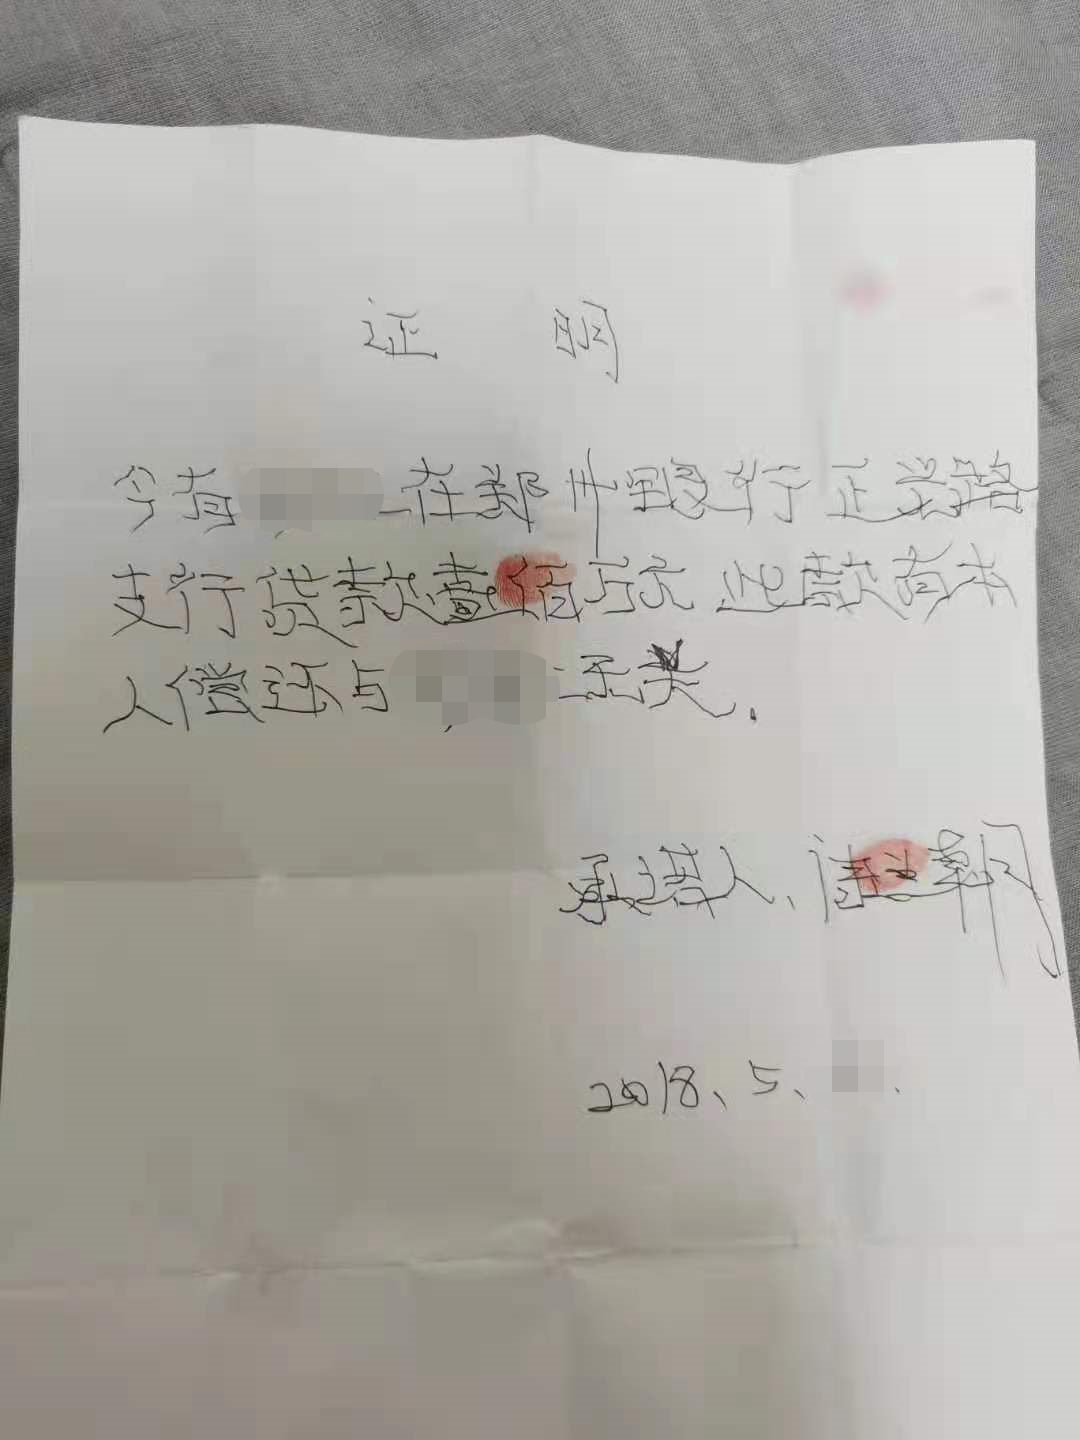 证 明
今有 在郑州银行正
支行贷款壹佰万元 此款有本
人偿还与 无关.
承诺人、
2018、5、 .